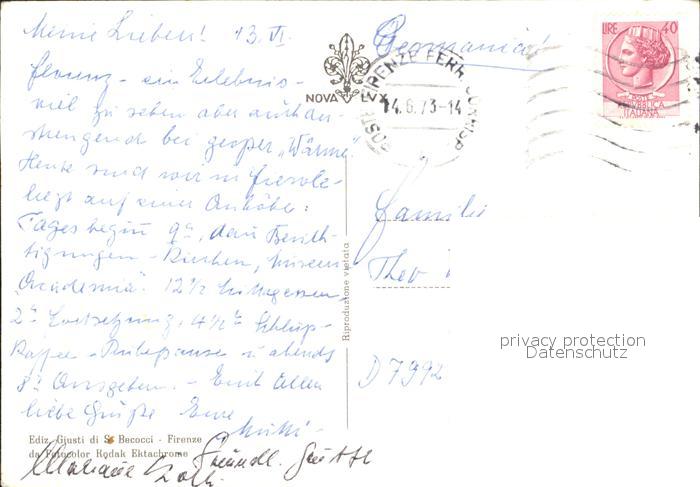 Meine Lieben! 13. VI.
Florenz - ein Erlebnis -
viel zu sehen aber auch an-
strengend bei großer "Wärme"
Heute sind wir in Fiesole
liegt auf einer Anhöhe:
Tages beginn 9h, dann Besich-
tigungen - Kirchen, Museen
"Academia". 12½ Mittagessen,
2h Fortsetzung, 4½h Schluß -
Kaffee - Ruhepause u abends
8h Ausgehen. - Euch Allen
liebe Grüße Eure
Ediz. Giusti di S. Becocci - Firenze
da Fotocolor Kodak Ektachrome
Freundl. Grüße
NOVA LVX
Riproduzione vietata
Germania!
FIRENZE FERR.
14.6.73-14
LIRE 40
POSTE
REPVBBLICA
ITALIANA
Familie
Theo
D 7992
privacy protection
Datenschutz